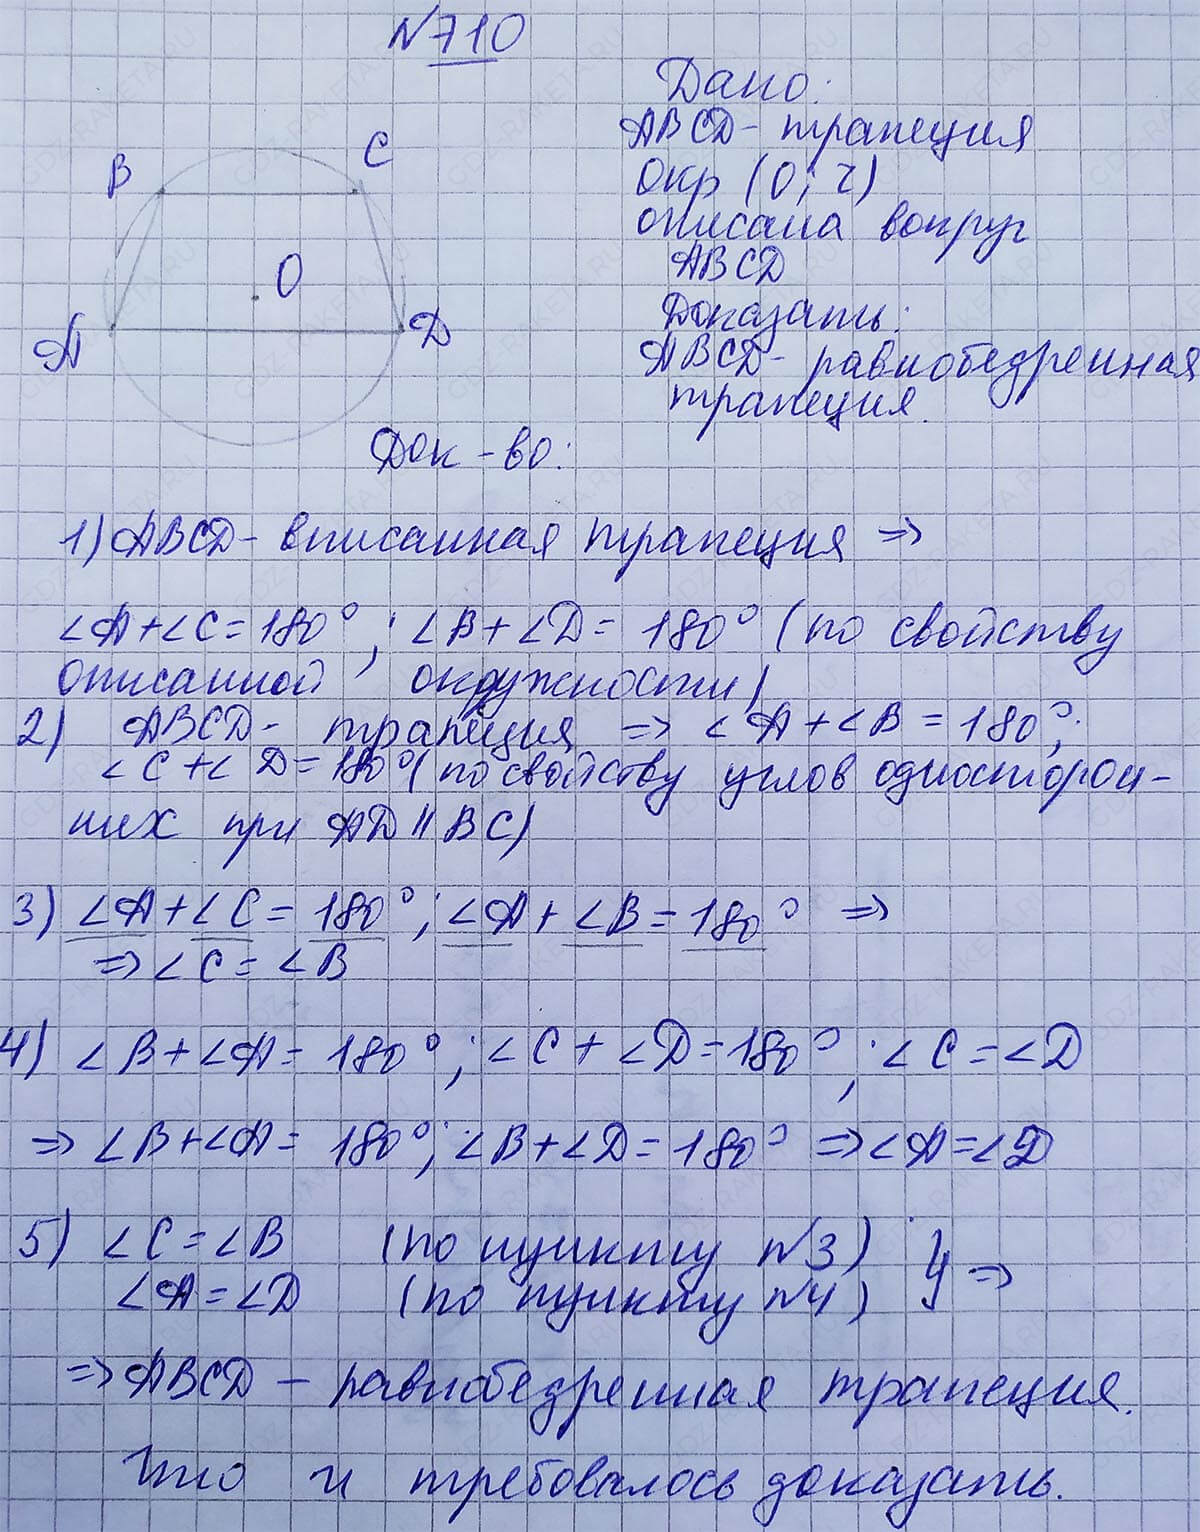 №710
Дано:
ABCD - трапеция
Окр (O; r)
описана вокруг
ABCD
Доказать:
ABCD - равнобедренная
трапеция.
B
C
O
A
D
Док-во:
1) ABCD - вписанная трапеция ⇒
∠A+∠C=180°; ∠B+∠D=180° (по свойству
описанной окружности)
2) ABCD - трапеция ⇒ ∠A+∠B=180°;
∠C+∠D=180° (по свойству углов односторон-
них при AD || BC)
3) ∠A+∠C=180°; ∠A+∠B=180° ⇒
⇒ ∠C=∠B
4) ∠B+∠A=180°; ∠C+∠D=180°; ∠C=∠D
⇒ ∠B+∠A=180°; ∠B+∠D=180° ⇒ ∠A=∠D
5) ∠C=∠B (по пункту №3) } ⇒
∠A=∠D (по пункту №4)
⇒ ABCD - равнобедренная трапеция.
Что и требовалось доказать.
GDZ-RAKETA.RU